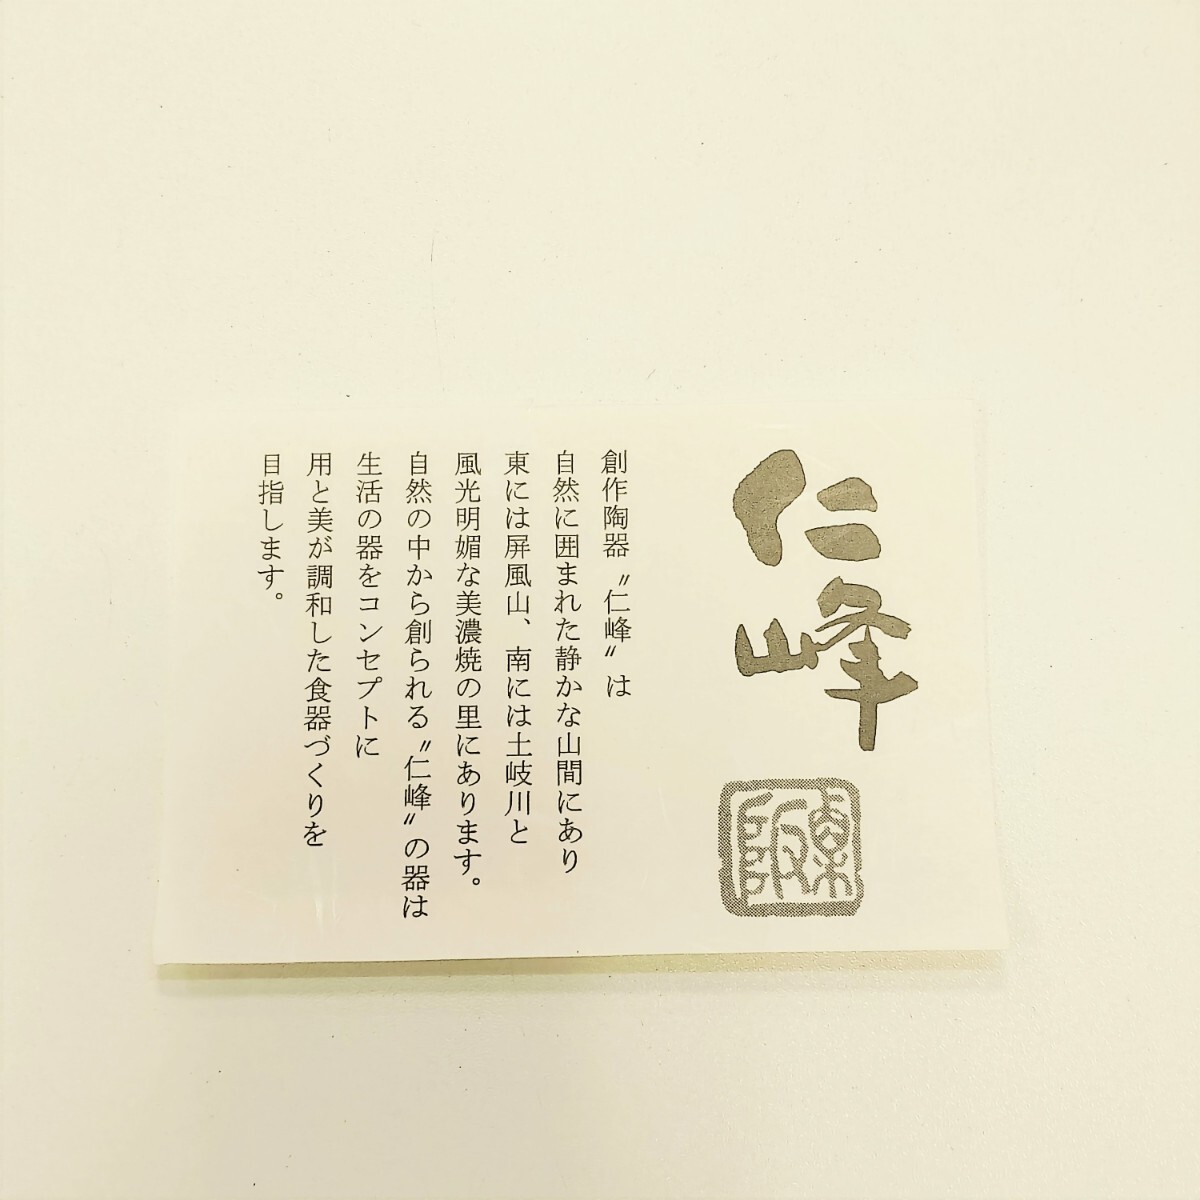 仁峰
創作陶器〝仁峰〟は
自然に囲まれた静かな山間にあり
東には屏風山、南には土岐川と
風光明媚な美濃焼の里にあります。
自然の中から創られる〝仁峰〟の器は
生活の器をコンセプトに
用と美が調和した食器づくりを
目指します。